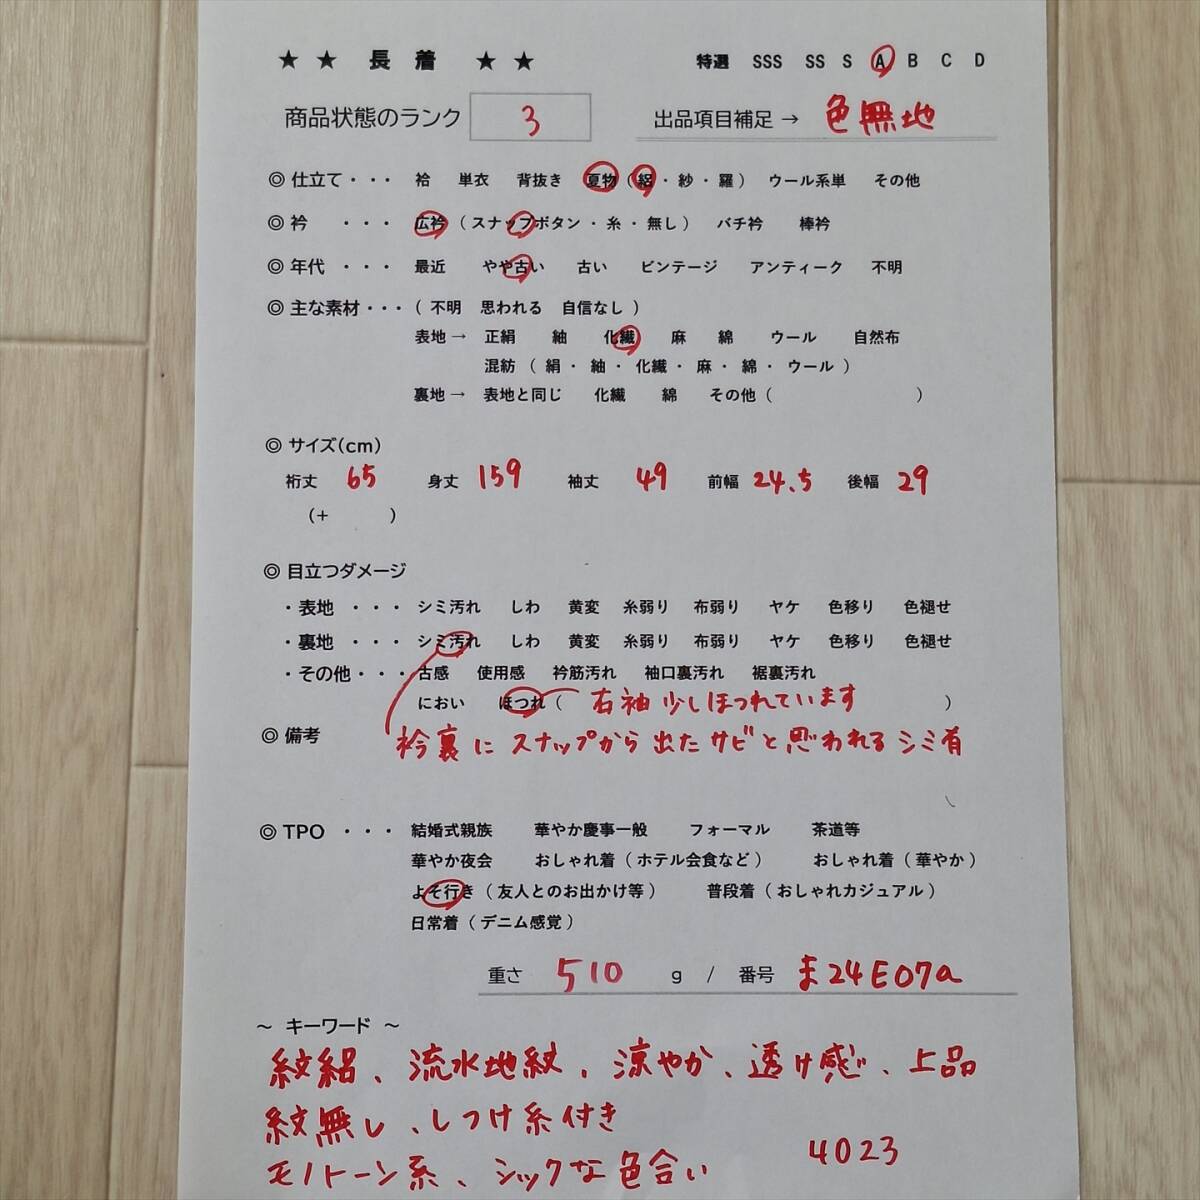 ★ ★ 長 着 ★ ★ 特選 SSS SS S A B C D
商品状態のランク 3 出品項目補足 → 色無地
◎ 仕立て・・・ 袷 単衣 背抜き 夏物 ( 絽 ・ 紗 ・ 羅 ) ウール系単 その他
◎ 衿 ・・・ 広衿 ( スナップボタン ・ 糸 ・ 無し ) バチ衿 棒衿
◎ 年代 ・・・ 最近 やや古い 古い ビンテージ アンティーク 不明
◎ 主な素材・・・ ( 不明 思われる 自信なし )
表地 → 正絹 紬 化繊 麻 綿 ウール 自然布
混紡 ( 絹 ・ 紬 ・ 化繊 ・ 麻 ・ 綿 ・ ウール )
裏地 → 表地と同じ 化繊 綿 その他 ( )
◎ サイズ(cm)
裄丈 65 身丈 159 袖丈 49 前幅 24.5 後幅 29
(+ )
◎ 目立つダメージ
・表地 ・・・ シミ汚れ しわ 黄変 糸弱り 布弱り ヤケ 色移り 色褪せ
・裏地 ・・・ シミ汚れ しわ 黄変 糸弱り 布弱り ヤケ 色移り 色褪せ
・その他・・・ 古感 使用感 衿筋汚れ 袖口裏汚れ 裾裏汚れ
におい ほつれ ( 右袖 少しほつれています )
◎ 備考 衿裏 に スナップから 出た サビと 思われる シミ有
◎ TPO ・・・ 結婚式親族 華やか慶事一般 フォーマル 茶道等
華やか夜会 おしゃれ着 ( ホテル会食など ) おしゃれ着 ( 華やか )
よそ行き ( 友人とのお出かけ等 ) 普段着 ( おしゃれカジュアル )
日常着 ( デニム感覚 )
重さ 510 g / 番号 ま24E07a
～ キーワード ～
紋絽、流水地紋、涼やか、透け感、上品
紋無し、しつけ糸付き
モノトーン系、シックな色合い 4023